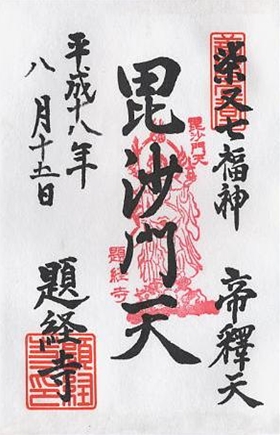 柴又七福神
帝釋天
毘沙門天
毘沙門天
題経寺
平成十八年
八月十五日
題経寺